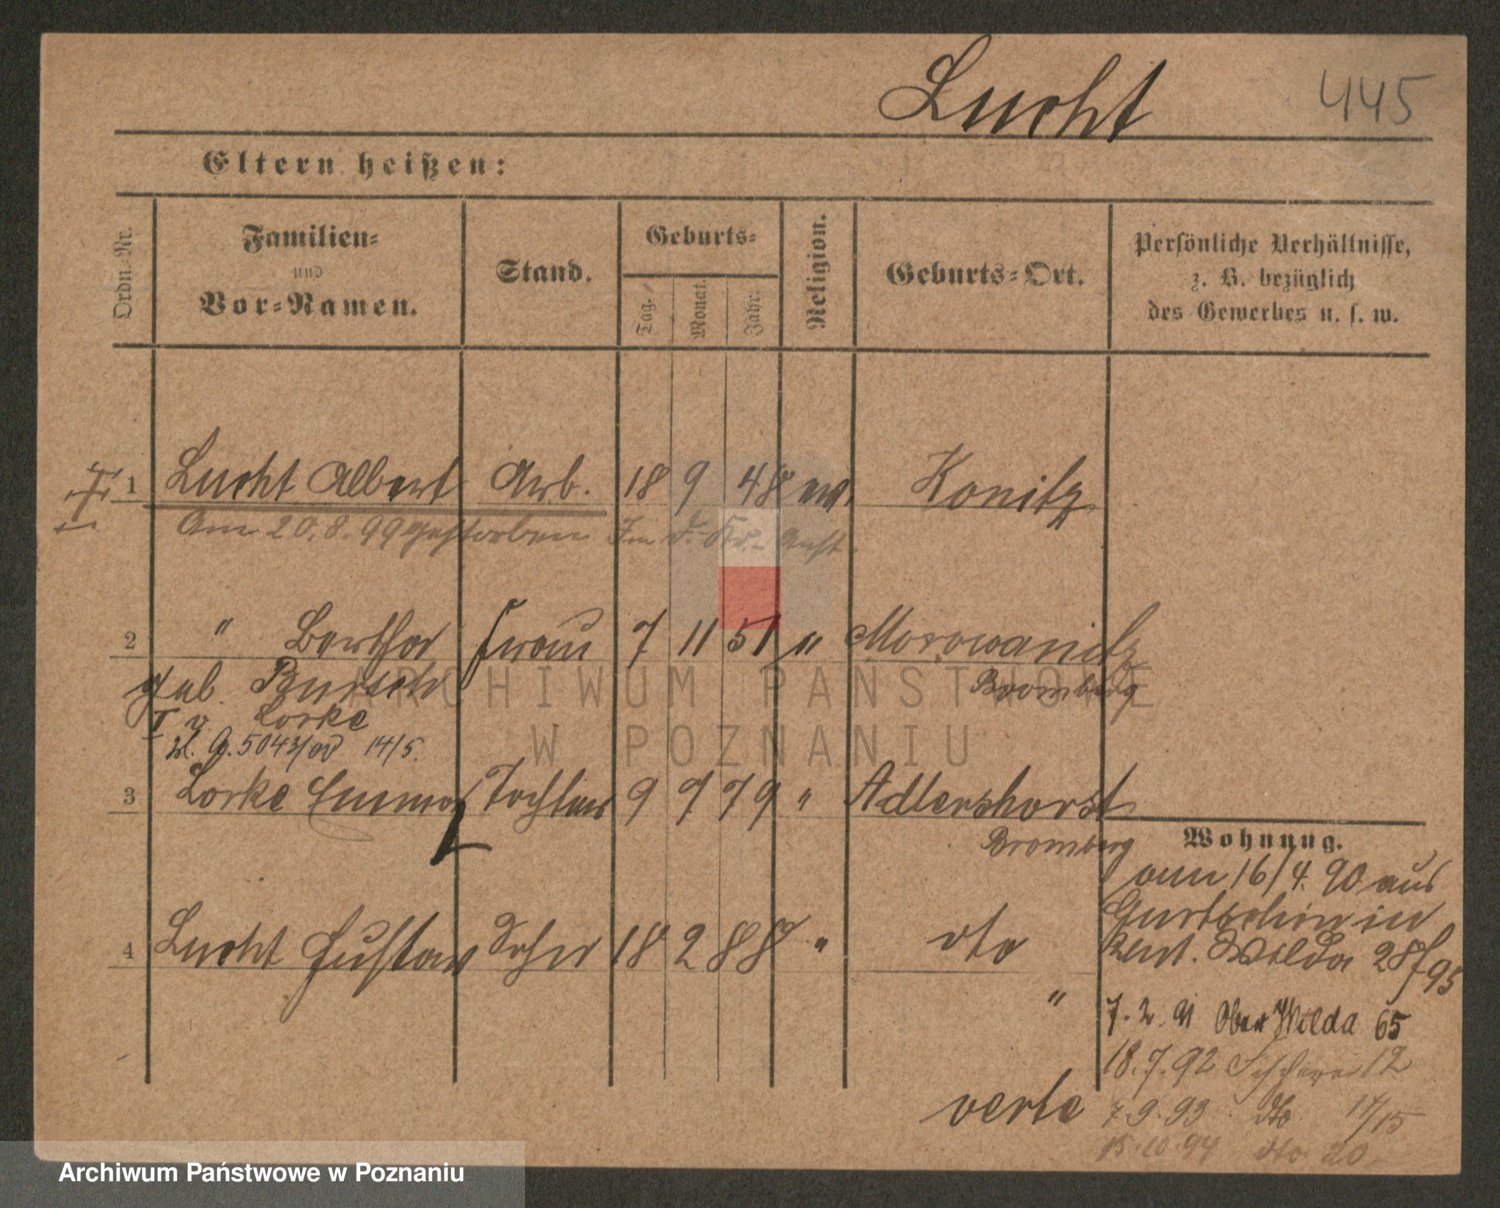 Lucht 445
Eltern heißen:
Ordn.-Nr. Familien- und Vor-Namen. Stand. Geburts- Tag. Monat. Jahr. Religion. Geburts-Ort. Persönliche Verhältnisse, z. B. bezüglich des Gewerbes u. s. w.
1 Lucht Albert Arb. 18 9 48 ev. Konitz
Am 20.8.99 gestorben Im
2 " Bertha Frau 7 11 51 " Morowanitz
geb. Bursch Bromberg
I v Lorke
5043 14/5.
3 Lorke Emma Tochter 9 9 79 " Adlershorst
Bromberg
Wohnung.
vom 16/4. 90 aus
Gurtschin in
4 Lucht Gustav Sohn 18 2 88 " dto
Wilda 28/95
"
7. 2. 91 Ober Wilda 65
18. 7. 92 Fischerei 12
verte 7 9. 93 dto 14/15
15. 10. 94 dto 20
ARCHIWUM PAŃSTWOWE
W POZNANIU
Archiwum Państwowe w Poznaniu